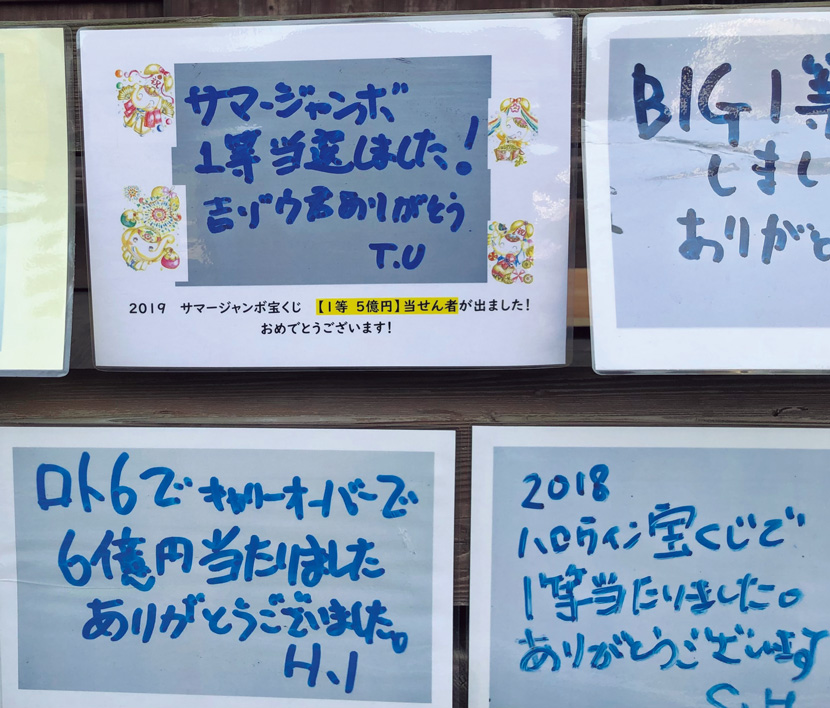 サマージャンボ
1等当選しました!
吉ゾウ君ありがとう
T.U
2019 サマージャンボ宝くじ 【1等 5億円】当せん者が出ました!
おめでとうございます!
BIG1等
しまし
ありがと
ロト6でキャリーオーバーで
6億円当たりました
ありがとうございました。
H.I
2018
ハロウィン宝くじで
1等当たりました。
ありがとうございます
S.H